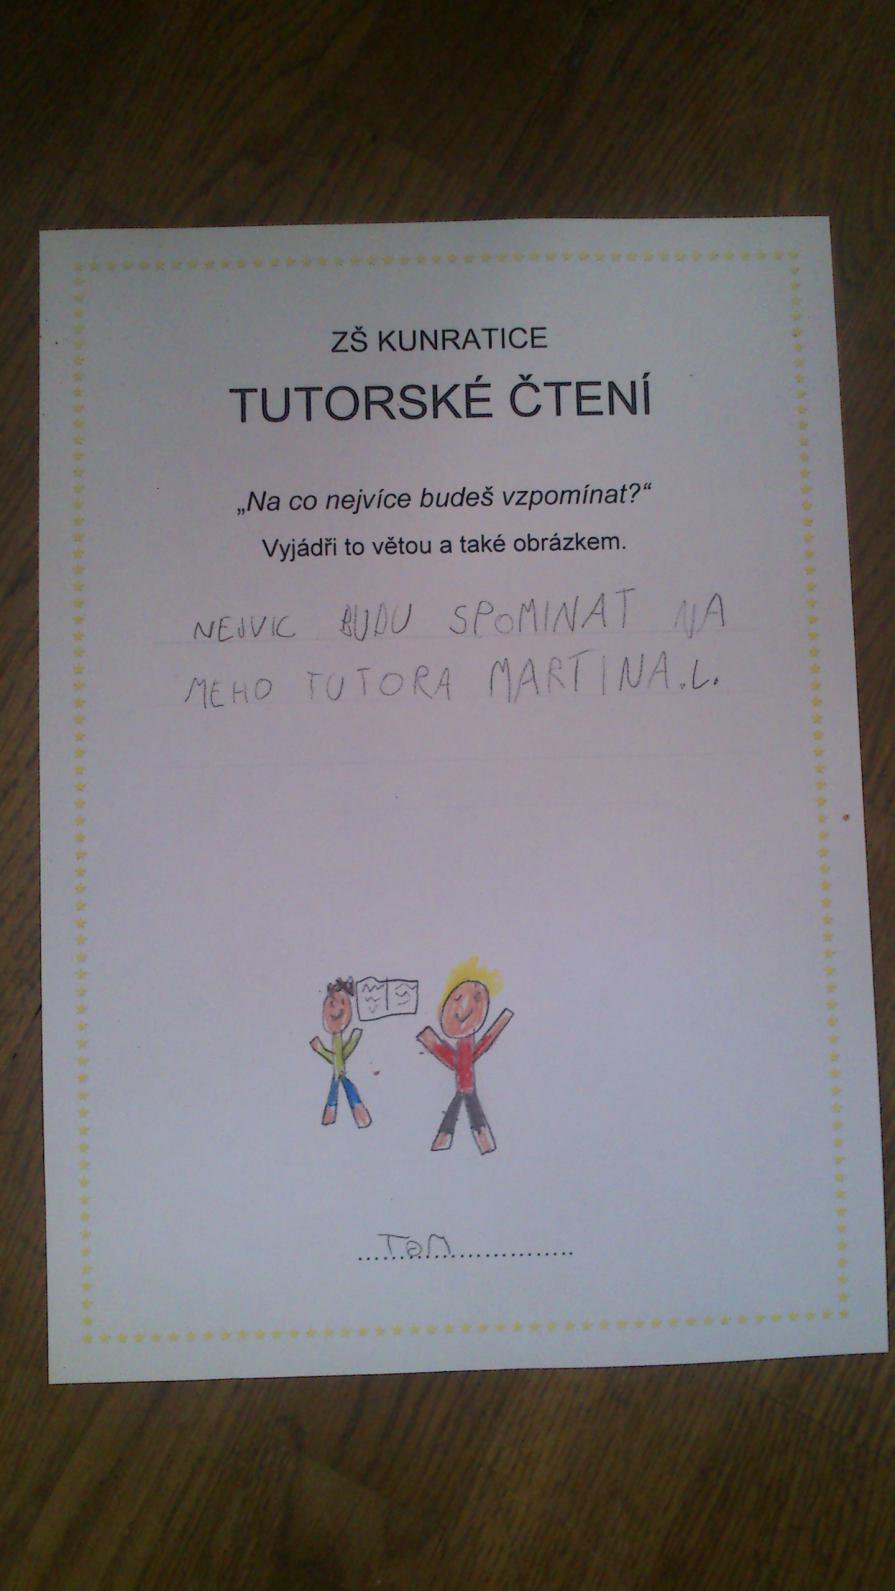 ZŠ KUNRATICE
TUTORSKÉ ČTENÍ
„Na co nejvíce budeš vzpomínat?“
Vyjádři to větou a také obrázkem.
NEJVIC BUDU SPOMINAT NA
MEHO TUTORA MARTINA.L.
TOM